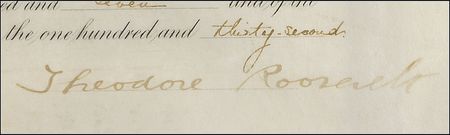 and seven and of the
the one hundred and thirty-second.
Theodore Roosevelt